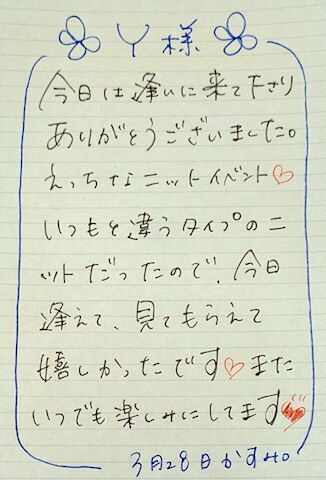 Y様
今日は逢いに来て下さり
ありがとうございました。
えっちなニットイベント♡
いつもと違うタイプのニ
ットだったので、今日
逢えて、見てもらえて
嬉しかったです♡また
いつでも楽しみにしてます♥
3月28日かすみ。